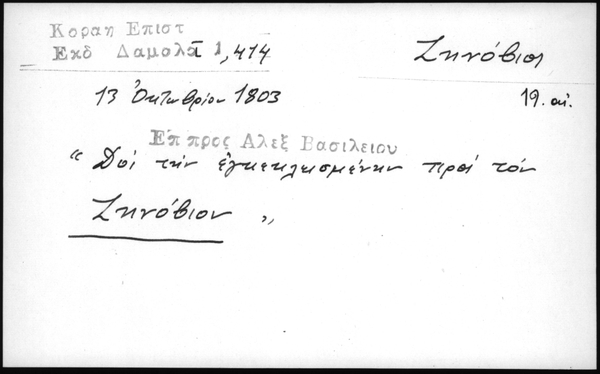 Κοραη Επιστ
Εκδ Δαμαλα 1, 414
Ζηνόβιος
13 Ὀκτωβρίου 1803
19. αἰ.
Επ προς Αλεξ Βασιλειου
“ Δός τὴν ἐγκεκλεισμένην πρὸς τὸν
Ζηνόβιον ”